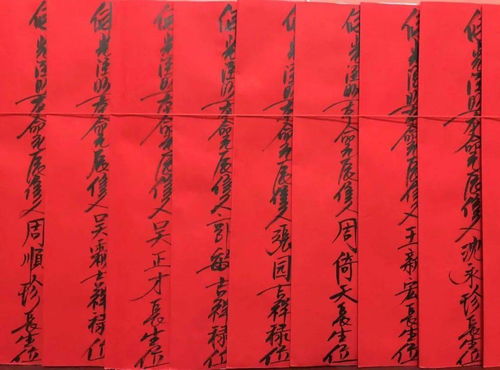 佛光注照本命元辰信人沈永珍長生位
佛光注照本命元辰信人王新宏長生位
佛光注照本命元辰信人周倚天長生位
佛光注照本命元辰信人張园吉祥禄位
佛光注照本命元辰信人敏吉祥禄位
佛光注照本命元辰信人吴正才長生位
佛光注照本命元辰信人吴霜吉祥禄位
佛光注照本命元辰信人周順珍長生位